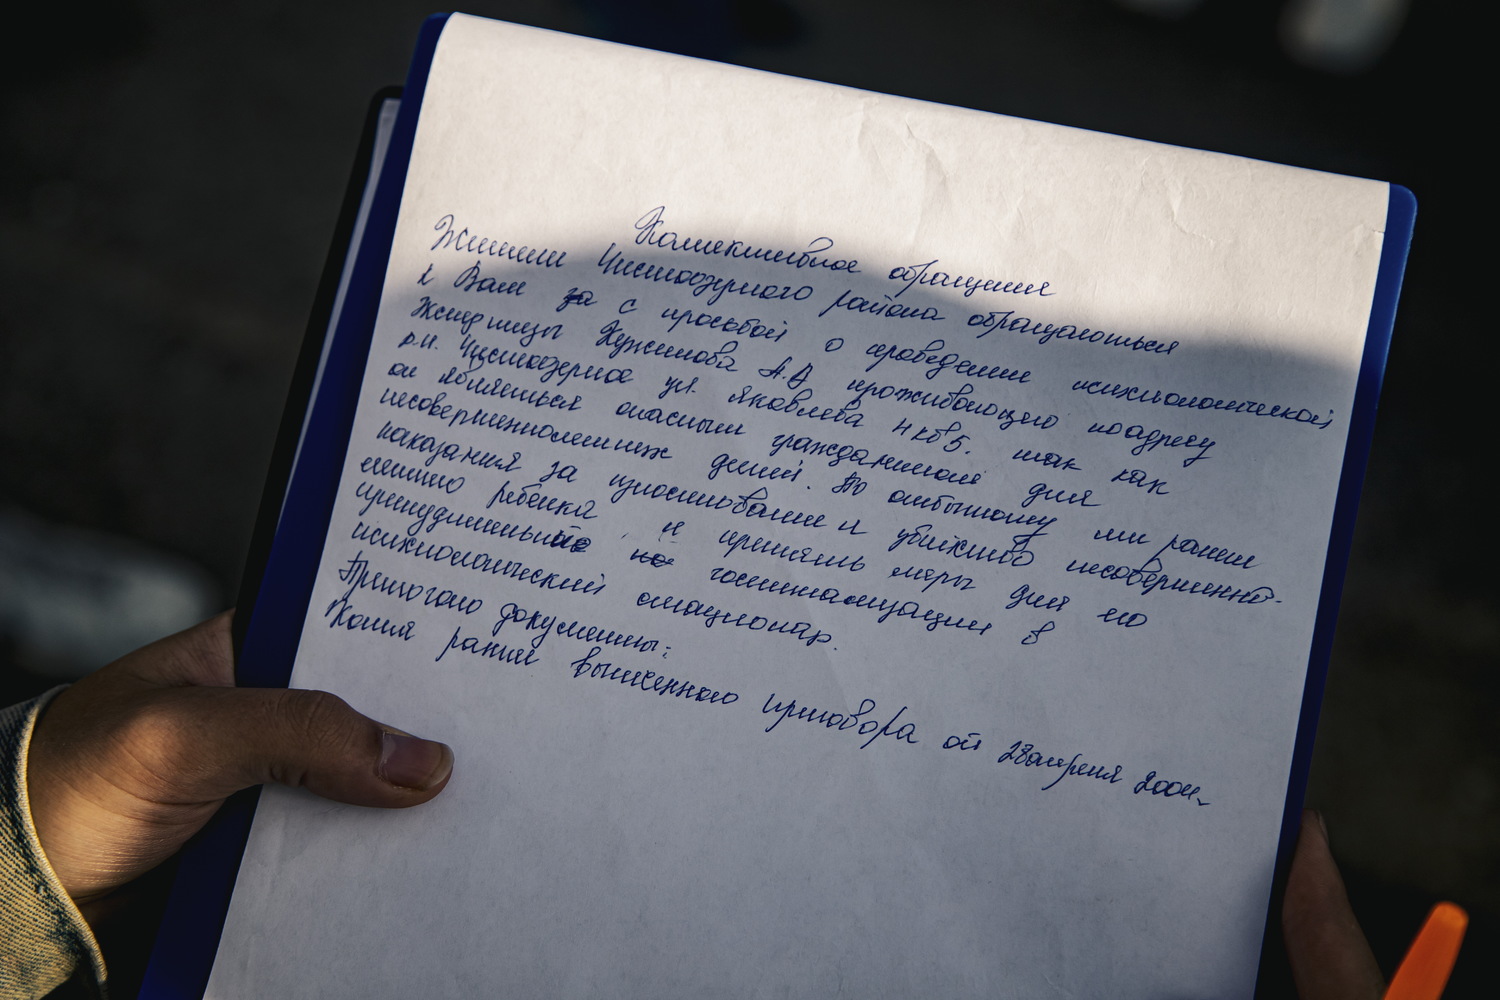 Коллективное обращение
Жители Чистоозерного района обращаються
к Вам за с просьбой о проведении психиологической
экспертизы Кужелова А.А проживающего поадресу
р.п. Чистоозерное ул. Яковлева 4 кв 5. так как
он являеться опасным гражданином для
несовершеннолетних детей. По отбытому им ранее
наказания за изнасилование и убийство несовершенно-
летнего ребенка и принять меры для его
принудительной госпитализации в
психиологический стационар.
Прилогаю документы:
Копия ранее вынесенного приговора от 28апреля 2001г.